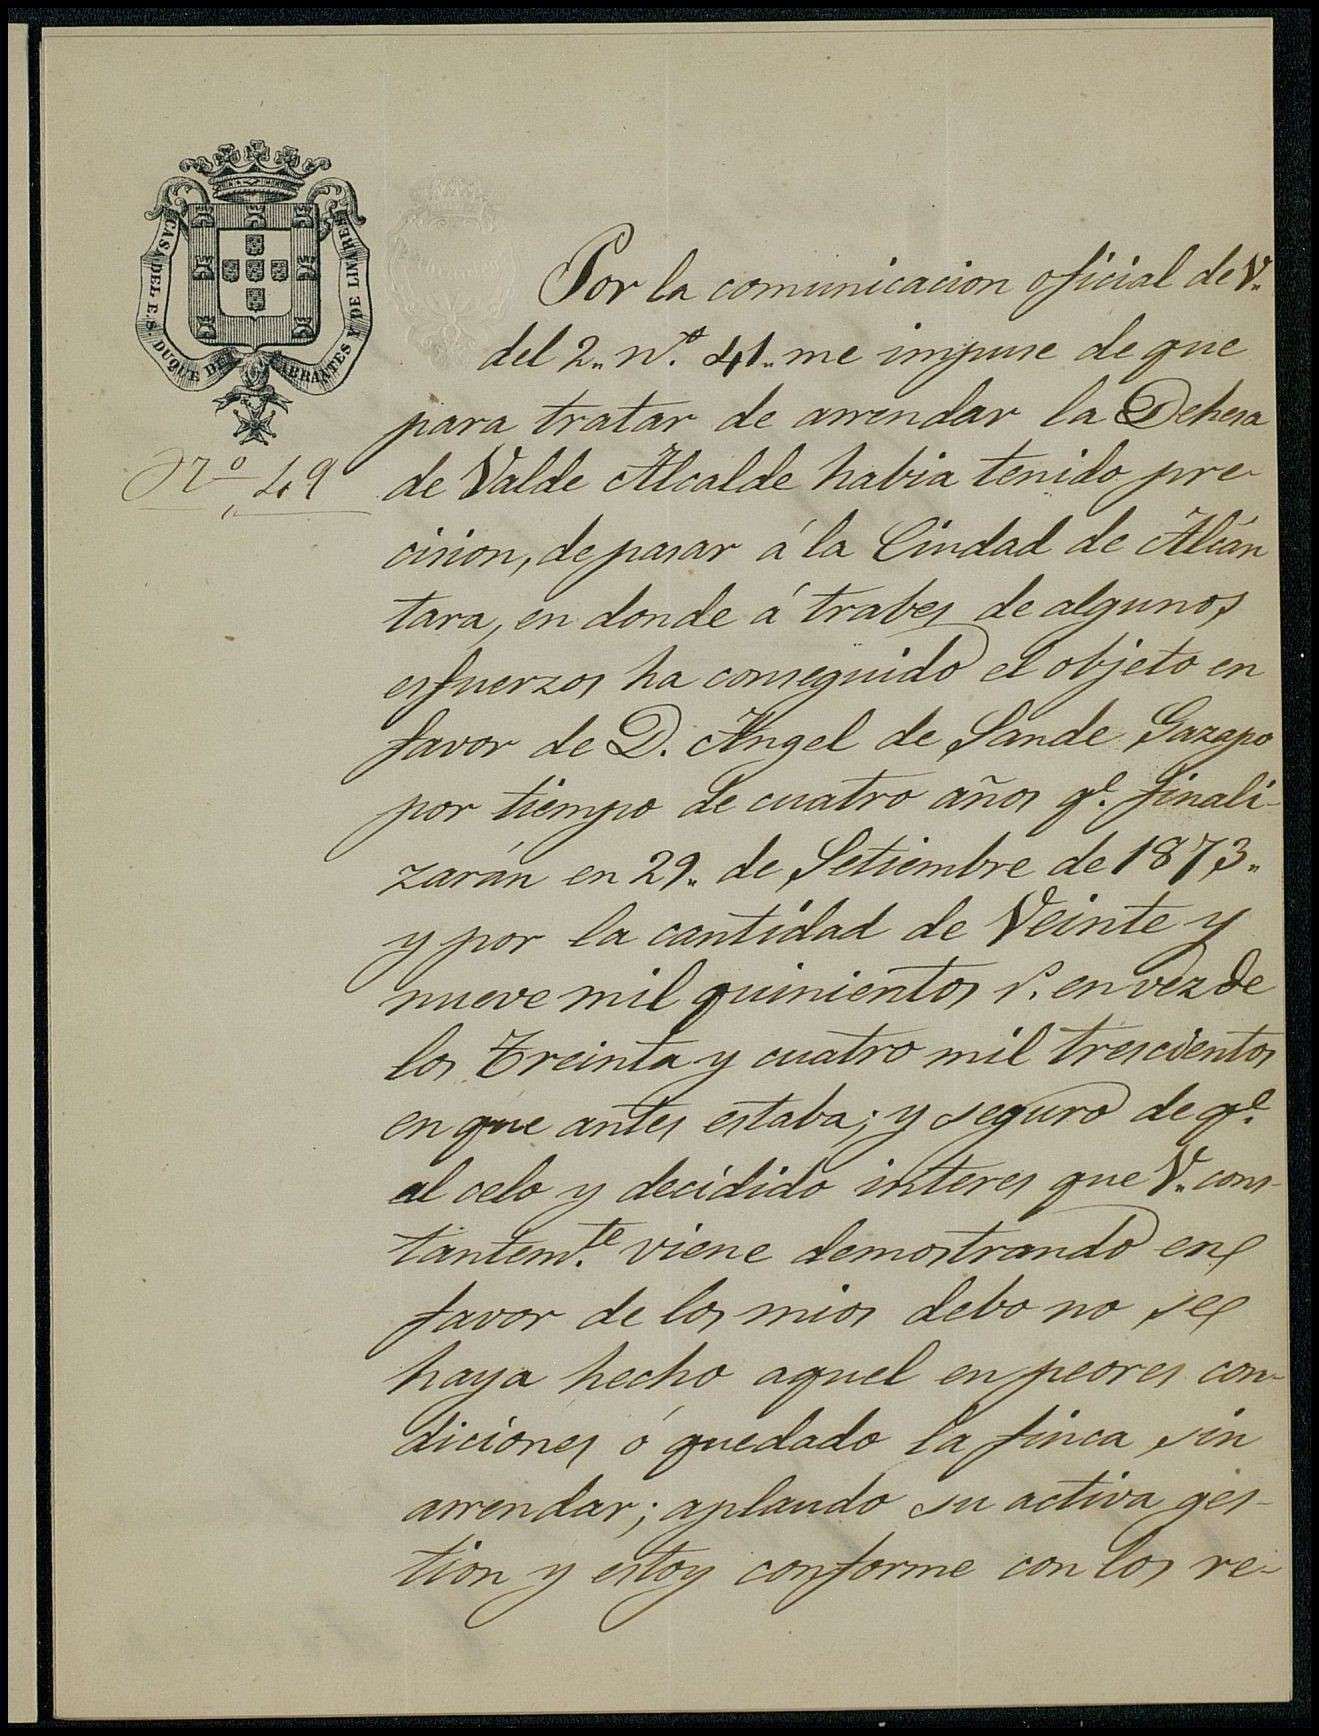 CASA DEL E. S. DUQUE DE ABRANTES Y DE LINARES
N.º 49
Por la comunicacion oficial de V.
del 2. n.º 41. me impuse de que
para tratar de arrendar la Dehesa
de Valde Alcalde habia tenido pre-
cision, de pasar á la Ciudad de Alcán
tara, en donde á trabes de algunos
esfuerzos ha conseguido el objeto en
favor de D. Angel de Sande Gazapo
por tiempo de cuatro años q.e finali-
zarán en 29. de Setiembre de 1873.
y por la cantidad de Veinte y
nueve mil quinientos r.s en vez de
los Treinta y cuatro mil trescientos
en que antes estaba; y seguro de q.e
al celo y decidido interes que V. cons-
tantem.te viene demostrando en
favor de los mios debo no se
haya hecho aquel en peores con-
diciones ó quedado la finca sin
arrendar; aplaudo su activa ges-
tion y estoy conforme con los re-